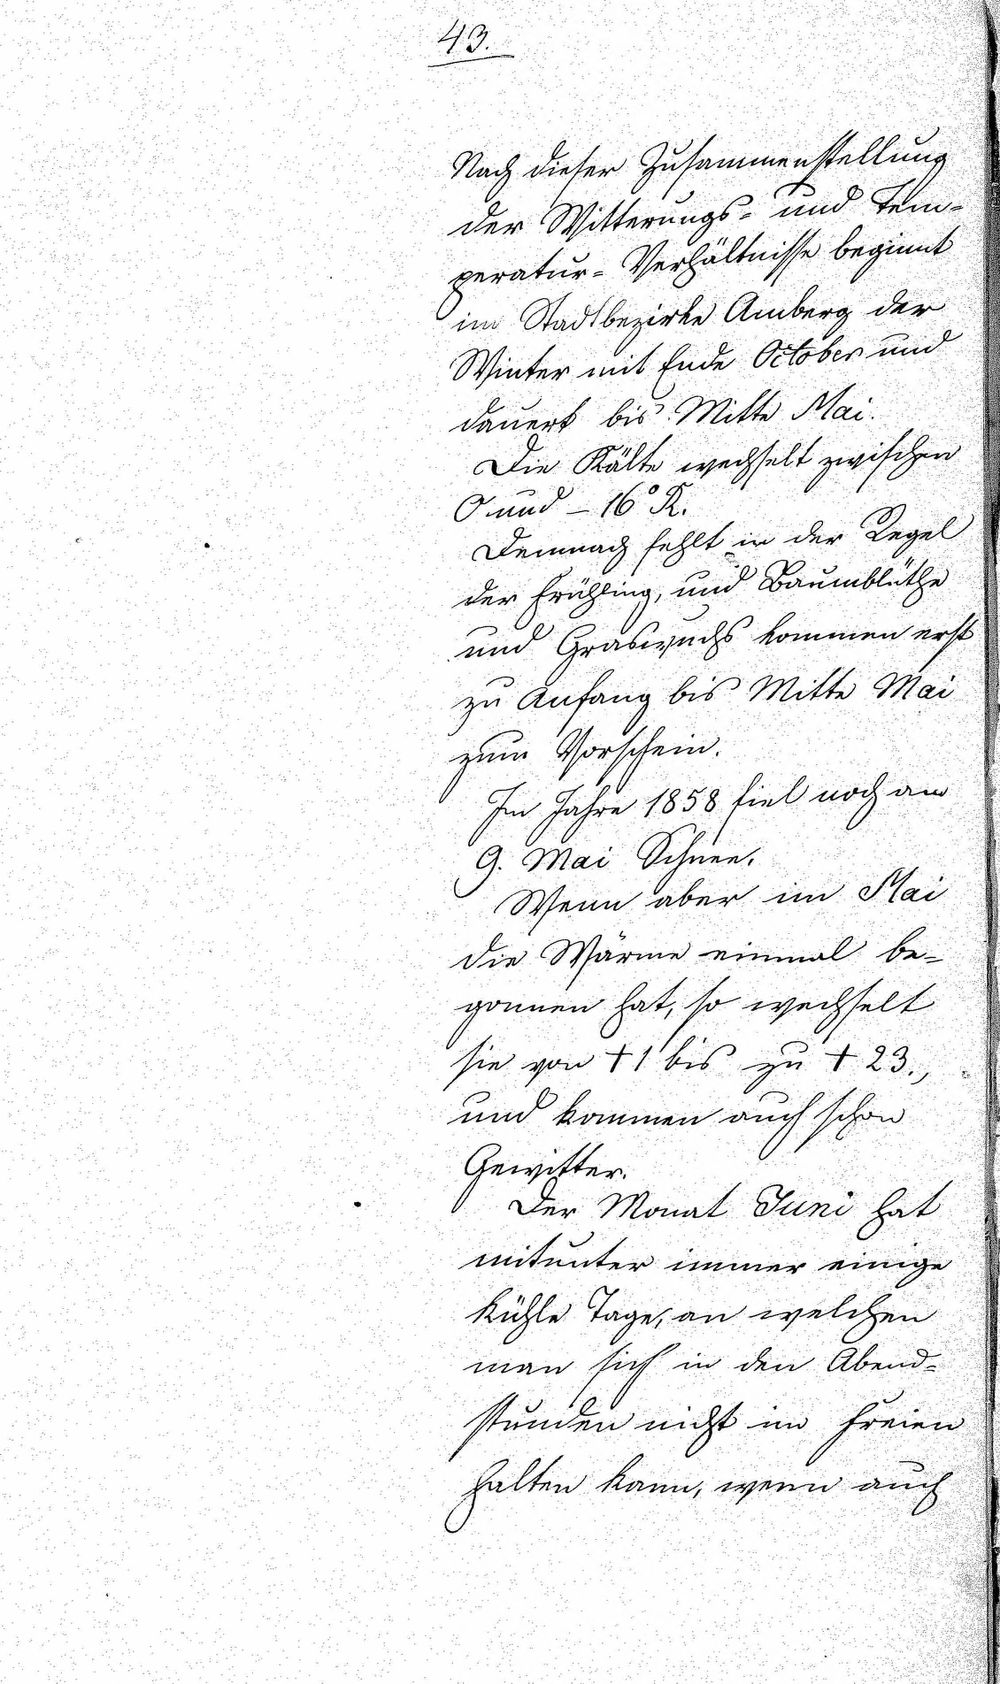 43.
Nach dieser Zusammenstellung
der Witterungs- und Tem-
peratur-Verhältnisse beginnt
im Stadtbezirke Amberg der
Winter mit Ende October und
dauert bis Mitte Mai.
Die Kälte wechselt zwischen
0 und – 16° R.
Demnach fehlt in der Regel
der Frühling, und Baumblüthe
und Graswuchs kommen erst
zu Anfang bis Mitte Mai
zum Vorschein.
Im Jahre 1858 fiel noch am
9. Mai Schnee.
Wenn aber im Mai
die Wärme einmal be-
gonnen hat, so wechselt
sie von + 1 bis zu + 23.,
und kommen auch schon
Gewitter.
Der Monat Juni hat
mitunter immer einige
kühle Tage, an welchen
man sich in den Abend-
stunden nicht im Freien
halten kann, wenn auch